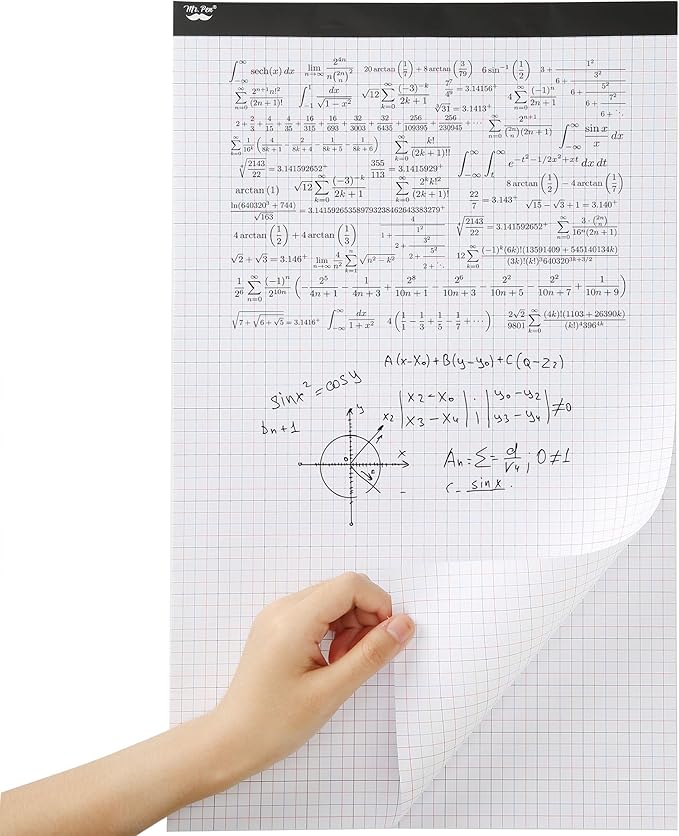 Mr. Pen®
∫_{-∞}^{∞} sech(x) dx   lim_{n→∞} 2^{4n} / (n\binom{2n}{n}^2)   20 arctan(1/7) + 8 arctan(3/79)   6 sin⁻¹(1/2)   3 + 1²/(6 + 3²/(6 + 5²/(6 + 7²/(6 + ⋱))))
∑_{n=0}^{∞} 2^{n+1}n!²/(2n+1)!   ∫_{-1}^{1} dx/√(1−x²)   √12 ∑_{k=0}^{∞} (−3)^{−k}/(2k+1)   7⁷/4⁹ = 3.14156⁺   ∛31 = 3.1413⁺   4∑_{n=0}^{∞} (−1)ⁿ/(2n+1)
2 + 2/3 + 4/15 + 4/35 + 16/315 + 16/693 + 32/3003 + 32/6435 + 256/109395 + 256/230945 + ⋯   ∑_{n=0}^{∞} 2^{n+1}/(\binom{2n}{n}(2n+1))   ∫_{-∞}^{∞} sin x/x dx
∑_{k=0}^{∞} 1/16^k (4/(8k+1) − 2/(8k+4) − 1/(8k+5) − 1/(8k+6))   ∑_{k=0}^{∞} k!/(2k+1)!!   ∫_{-∞}^{∞} ∫_{t}^{∞} e^{−t²−1/2x²+xt} dx dt
∜(2143/22) = 3.141592652⁺   355/113 = 3.1415929⁺
arctan(1)   √12 ∑_{k=0}^{∞} (−3)^{−k}/(2k+1)   ∑_{k=0}^{∞} 2^k k!²/(2k+1)!   22/7 = 3.143⁺   8 arctan(1/2) − 4 arctan(1/7)
√15 − √3 + 1 = 3.140⁺
ln(640320³ + 744)/√163 = 3.141592653589793238462643383279⁺   ∜(2143/22) = 3.141592652⁺   ∑_{n=0}^{∞} 3·\binom{2n}{n}/(16ⁿ(2n+1))
4 arctan(1/2) + 4 arctan(1/3)   4/(1 + 1²/(2 + 3²/(2 + 5²/(2 + ⋱))))
√2 + √3 = 3.146⁺   lim_{n→∞} 4/n² ∑_{k=1}^{n} √(n² − k²)   12∑_{k=0}^{∞} (−1)^k(6k)!(13591409 + 545140134k)/((3k)!(k!)³640320^{3k+3/2})
1/2⁶ ∑_{n=0}^{∞} (−1)ⁿ/2^{10n} (−2⁵/(4n+1) − 1/(4n+3) + 2⁸/(10n+1) − 2⁶/(10n+3) − 2²/(10n+5) − 2²/(10n+7) + 1/(10n+9))
√(7 + √(6 + √5)) = 3.1416⁺   ∫_{-∞}^{∞} dx/(1+x²)   4(1/1 − 1/3 + 1/5 − 1/7 + ⋯)   2√2/9801 ∑_{k=0}^{∞} (4k)!(1103 + 26390k)/((k!)⁴396^{4k})
A(x-x₀)+B(y-y₀)+C(Q-Z₂)
sinx² = cosy
bn+1
y
x2
x
0
|x2-x0 . | |y0-y2|
|x3-x4 | |y3-y4| ≠0
An = Σ = d/√4 ; 0≠1
c- sinx .